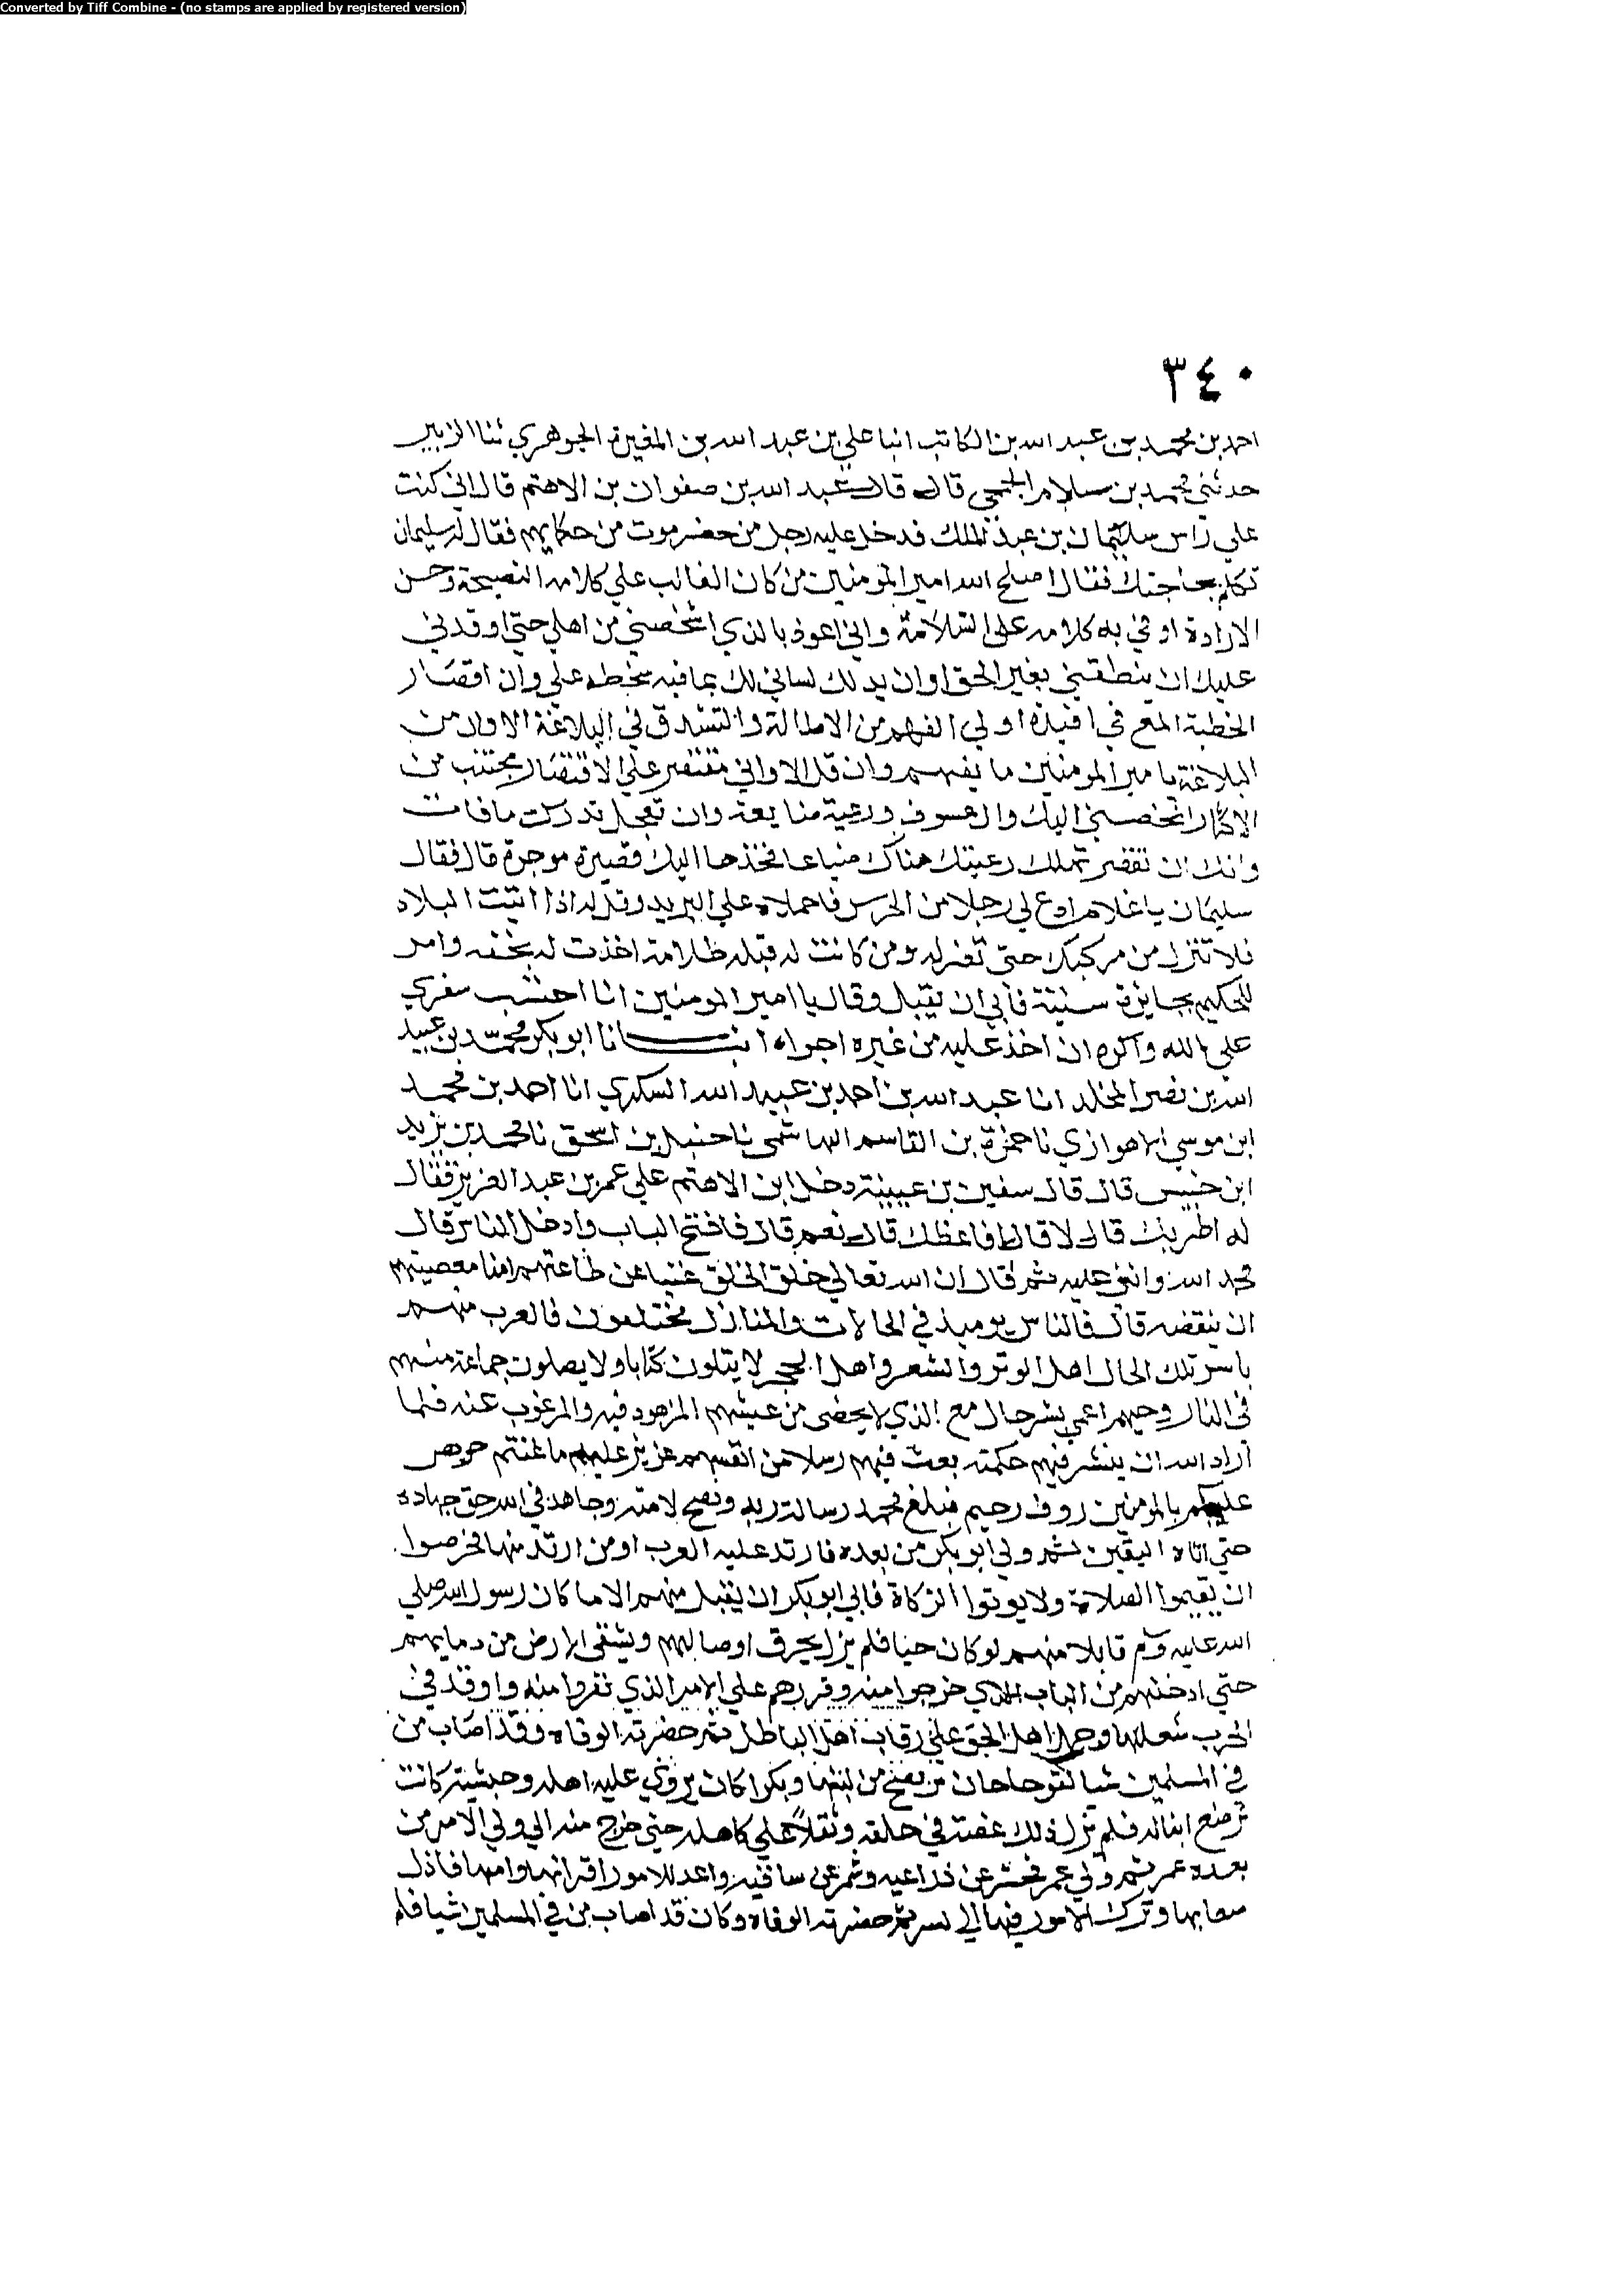 Converted by Tiff Combine - (no stamps are applied by registered version)
٣٤٠
احمد بن محمد بن عبد الله بن الكاتب انبا علي بن عبد الله بن المغيرة الجوهري ثنا الزبير
حدثني محمد بن سلام الجمحي قال قال عبد الله بن صفوان بن الاهتم قال اني كنت
علي راس سليمان بن عبد الملك فدخل عليه رجل من حضرموت من حكمايهم فقال له سليمان
تكلم بحاجتك فقال اصلح الله امير المومنين من كان الغالب علي كلامه النصيحة وحسن
الارادة اوفي به كلامه على السلامة واني اعوذ بالذي اشخصني من اهلي حتي اوفدني
عليك ان ينطقني بغير الحق اوان يدلك لساني لك بما فيه سخطه علي وان اقصار
الخطبة المع في افيدة اولي الفهم من الاطالة والتشدق في البلاغة الاوان من
البلاغة يا مير المومنين ما يفهم وان قل الاواني مقتصر علي الاقتصار مجتنب من
الاكثار اشخصني اليك وال عسوف ورعية ضايعة وان تعجل تدرك ما فات
وانك ان تقصر تهلك رعيتك هناك ضياعا فخذها اليك قصيرة موجزة قال فقال
سليمان يا غلام ادع لي رجلا من الحرس فاحمله علي البريد وقل له اذا اتيت البلاد
فلا تنزل من مركبك حتى تعزله ومن كانت له قبله ظلامة اخذت له بحقه وامر
للحكيم بجايزة سنية فابي ان يقبل وقال يا امير المومنين انا احتسب سفري
علي الله واكره ان اخذ عليه من غيره اجراء انبــانا ابو بكر محمد بن عبيد
الله بن نصر المخلد انا عبد الله بن احمد بن عبيد الله السكري انا احمد بن محمد
ابن موسي الاهوازي نا حمزة بن القاسم الهاشمي نا حنبل بن اسحق نا محمد بن يزيد
ابن خنيس قال قال سفين بن عيينة دخل ابن الاهتم علي عمر بن عبد العزيز فقال
له اطريك قال لا قال فاعظك قال نعم قال فافتح الباب وادخل الناس قال
حمد الله واثني عليه ثم قال ان الله تعالي خلق الخلق غنيا عن طاعتهم امنا معصيتهم
ان تنقصه قال فالناس يوميذ في الحالات والمنازل مختلفون فالعرب منهم
باسر تلك الحال اهل الوتر والشعر واهل الحجر لا يتلون كتابا ولا يصلون جماعة منهم
في النار وحيهم اعمي بشر حال مع الذي لا يحصى من عيشهم المزهود فيه والمرغوب عنه فلما
اراد الله ان ينشر فيهم حكمته بعث فيهم رسلا من انفسهم عزيز عليهم ما عنتم حريص
عليكم بالمومنين روف رحيم فبلغ محمد رسالة ربه ونصح لامته وجاهد في الله حق جهاده
حتي اتاه اليقين ثم ولي ابو بكر من بعده فارتد عليه العرب او من ارتد منها فحرصوا
ان يقيموا الصلاة ولا يوتوا الزكاة فابي ابو بكر ان يقبل منهم الا ما كان رسول الله صلي
الله عليه وسلم قابلا منهم لو كان حيا فلم يزل يحرق اوصالهم ويسقي الارض من دمايهم
حتي ادخلهم من الباب الذي خرجوا منه وقررهم علي الامر الذي نفروا منه واوقد في
الحرب شعلها وحمل اهل الحق علي رقاب اهل الباطل ثم حضرته الوفاه وقد اصاب من
في المسلمين شيا من لبنها وبكرا كان يروي عليه اهله وحبشية كانت
ترضع ابنا له فلم يزل ذلك غصة في حلقه وثقلا علي كاهله حتي خرج منه الي ولي الامر من
بعده عمر ثم ولي عمر فحسر عن ذراعيه وشمر عن ساقيه واعد للامور اقرانها وامها فاذل
صعابها وترك الامور فيها الي يسر ثم حضرته الوفاه وكان قد اصاب من في المسلمين شيا فلم